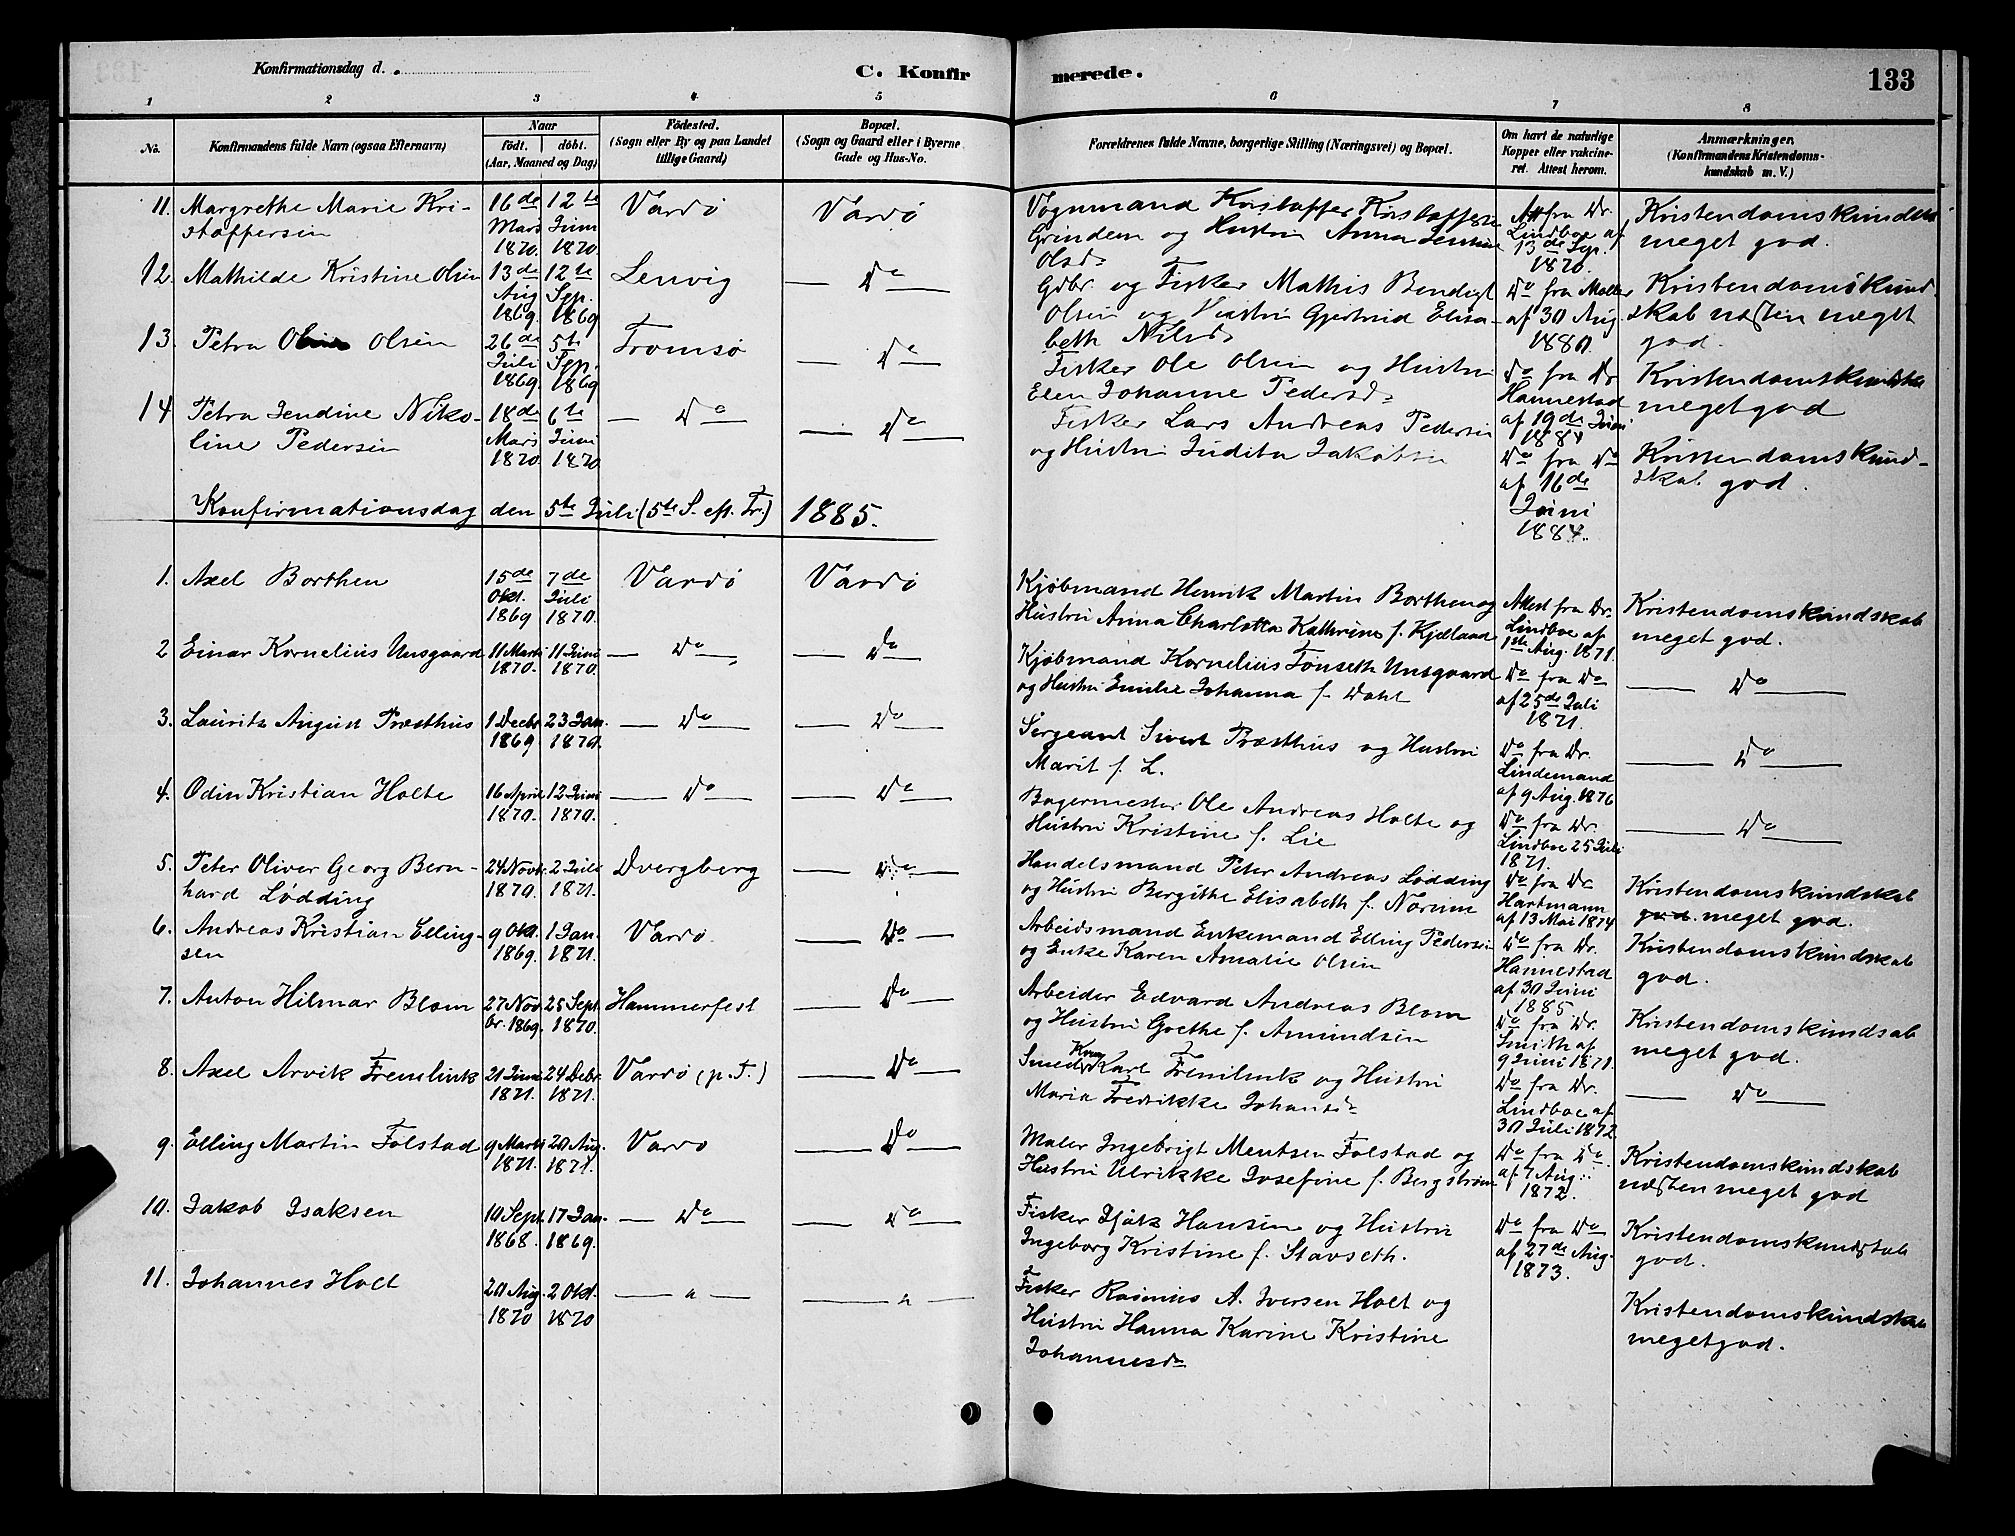 Konfirmationsdag d. . C. Konfirmerede. 133
1 2 3 4 5 6 7 8
No.
Konfirmandens fulde Navn (ogsaa Efternavn)
Naar
födt. döbt.
(Aar, Maaned og Dag)
Födested.
(Sogn eller By og paa Landet
tillige Gaard)
Bopæl.
(Sogn og Gaard eller i Byerne
Gade og Hus-No.
Forældrenes fulde Navne, borgerlige Stilling (Næringsvei) og Bopæl.
Om havt de naturlige
Kopper eller vakcine-
ret. Attest herom.
Anmærkninger.
(Konfirmandens Kristendoms-
kundskab m. V.)
11. Margrethe Marie Kri-
stoffersen
16de
Mars
1870.
12te
Juni
1870.
Vardø
Vardø
Vognmand Kristoffer Kristoffersen
Grindem og Hustru Anna
Olsd.
Att fra Dr.
Lindboe af
13de Sep.
1870.
Kristendomskundsk
meget god.
12. Mathilde Kristine Olsen
13de
Aug
1869.
12te
Sep.
1869
Lenvig
— Do —
Gdbr. og Fisker Mathis Bendigt
Olsen og Hustru Gjertrud Elisa-
beth Nilsd.
Do fra Møller
af 30 Aug.
1880.
Kristendomskund-
skab næsten meget
god.
13. Petra Olsen
26de
Juli
1869.
5te
Sep.
1869
Tromsø
— Do —
Fisker Ole Olsen og Hustru
Elen Johanne Pedersd.
Do fra Dr
Hannestad
af 19de Juni
1884
Kristendomskundska
meget god
14 Petra Jendine Niko-
line Pedersen
18de
Mars
1870
6te
Juni
1870
— Do —
— Do —
Fisker Lars Andreas Pedersen
og Hustru Judita Jakobsen
Do fra Do
af 16de
Juni
1884.
Kristendomskund-
skab god.
Konfirmationsdag den 5te Juli (5te S. eft. Tr.) 1885.
1. Axel Borthen
15de
Okt.
1869
7de
Juli
1870.
Vardø
Vardø
Kjøbmand Henrik Martin Borthen og
Hustru Anna Charlotta Kathrine f. Kjeland
Attest fra Dr.
Lindboe af
1ste Aug. 1871.
Kristendomskundskab
meget god.
2 Einar Kornelius Unsgaard
11 Marts
1870.
11 Juni
1870.
— Do —
— Do —
Kjøbmand Kornelius Tønseth Unsgaard
og Hustru Emilie Johanna f. Dahl
Do fra Do
af 25de Juli
1871.
— Do —
3. Lauritz August Præsthus
1 Decbr
1869.
23 Jan.
1870.
— Do —
— Do —
Sergeant Sivert Præsthus og Hustru
Marit f. L.
Do fra Dr.
Lindemand
af 9 Aug. 1876
— Do —
4. Odin Kristian Holte
16 April
1870.
12 Juni
1870.
— Do —
— Do —
Bagermester Ole Andreas Holte og
Hustru Kristine f. Lie
Do fra Dr.
Lindboe 25 Juli
1871.
— Do —
5. Peter Oliver Georg Bern-
hard Lødding
24 Novbr
1870.
2 Juli
1871.
Dvergberg
— Do —
Handelsmand Peter Andreas Lødding
og Hustru Bergithe Elisabeth f. Norum
Do fra Dr.
Hartmann
af 13 Mai 1874
Kristendomskundskab
god. meget god.
6. Andreas Kristian Elling-
sen
9 Okt.
1869.
1 Jan.
1871.
Vardø.
— Do —
Arbeidsmand Enkemand Elling Pedersen
og Enke Karen Amalie Olsen
Do fra Dr.
Hannestad
af 30 Juni
1885.
Kristendomskundskab
god.
7. Anton Hilmar Blom
27 Nov-
br. 1869.
25 Sept.
1870.
Hammerfest
— Do —
Arbeider Edvard Andreas Blom
og Hustru Grethe f. Amundsen
Do fra Dr.
Smith af
9 Juni 1871.
Kristendomskundsab
meget god.
8. Axel Arvik Fremlink
21 Juni
1871.
24 Debr.
1871.
Vardø (p. T.)
— Do —
Smed Karl Fremlink og Hustru
Maria Fredrikke Johansd.
Do fra Dr.
Lindboe af
30 Juli 1872
— Do —
9. Elling Martin Folstad
9 Marts
1871.
20 Aug.
1871.
Vardø
— Do —
Maler Ingebrigt Mentsen Folstad og
Hustru Ulrikke Josefine f. Bergstrøm
Do fra Do.
af 7 Aug.
1872.
Kristendomskundskab
næsten meget god
10. Jakob Isaksen
10 Sept.
1868.
17 Jan.
1869.
— Do —
— Do —
Fisker Isak Hansen og Hustru
Ingeborg Kristine f. Stavseth.
Do fra Do
af 27de Aug.
1873.
Kristendomskundskab
god.
11. Johannes Holt
20 Aug.
1870
2 Okt.
1870
— " —
— " —
Fisker Rasmus A. Iversen Holt og
Hustru Hanna Karine Kristine
Johannesd.
Kristendomskundskab
meget god.